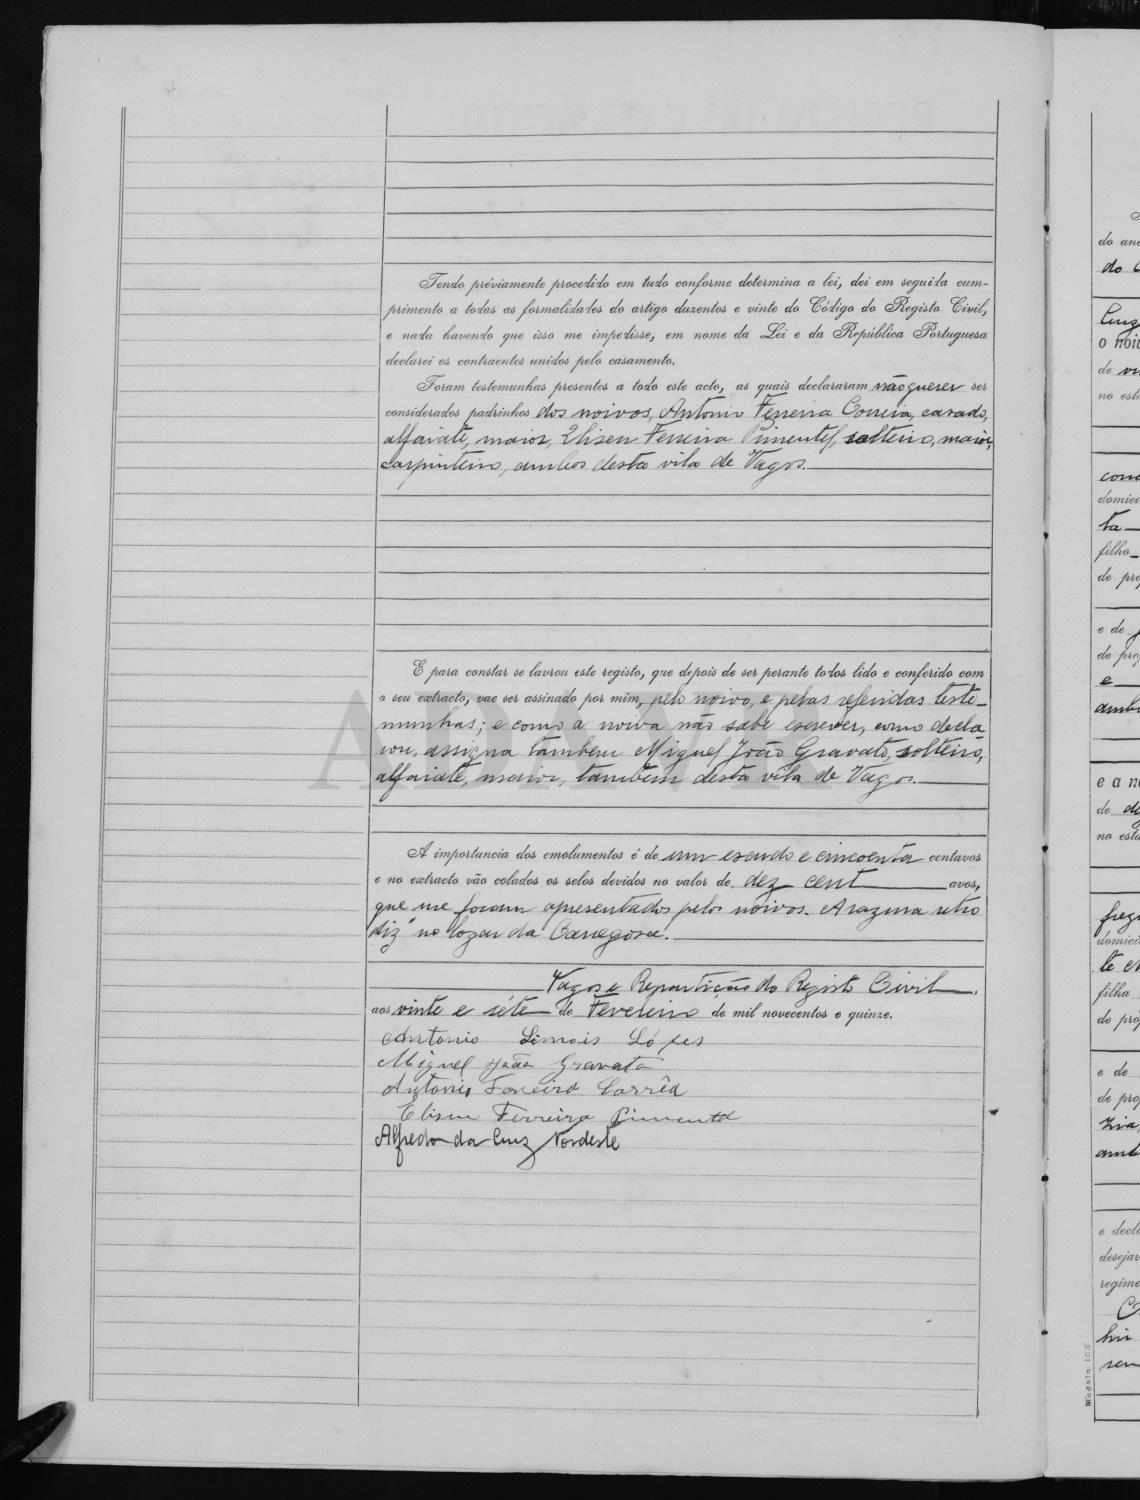 Tendo préviamente procedido em tudo conforme determina a lei, dei em seguida cum-
primento a todas as formalidades do artigo duzentos e vinte do Código do Registo Civil,
e nada havendo que isso me impedisse, em nome da Lei e da República Portuguesa
declarei os contraentes unidos pelo casamento.
Foram testemunhas presentes a todo este acto, as quais declararam não querer ser
considerados padrinhos dos noivos, Antonio Ferreira Correia, casado,
alfaiate, maior, Eliseu Ferreira Pimentel, solteiro, maior,
carpinteiro, ambos desta vila de Vagos.
E para constar se lavrou este registo, que depois de ser perante todos lido e conferido com
o seu extracto, vae ser assinado por mim, pelo noivo, e pelas referidas teste-
munhas; e como a noiva não sabe escrever, como decla-
rou, assigna tambem Miguel João Gravato, solteiro,
alfaiate, maior, tambem desta vila de Vagos.
A importancia dos emolumentos é de um escudo e cincoenta centavos
e no extracto vão colados os selos devidos no valor de dez cent avos,
que me foram apresentados pelos noivos. A razura retro
diz "no logar da
Vagos e Repartição do Registo Civil,
aos vinte e séte de Fevereiro de mil novecentos e quinze.
Antonio Lópes
Miguel João Gravato
Antonio Ferreira Corrêa
Eliseu Ferreira Pimentel
Alfredo da Cruz Nordeste
do
o
de
no
de
e
no
filho
de
e de
de
e
e a
de
no
filha
de
e de
de
e
Modelo 103